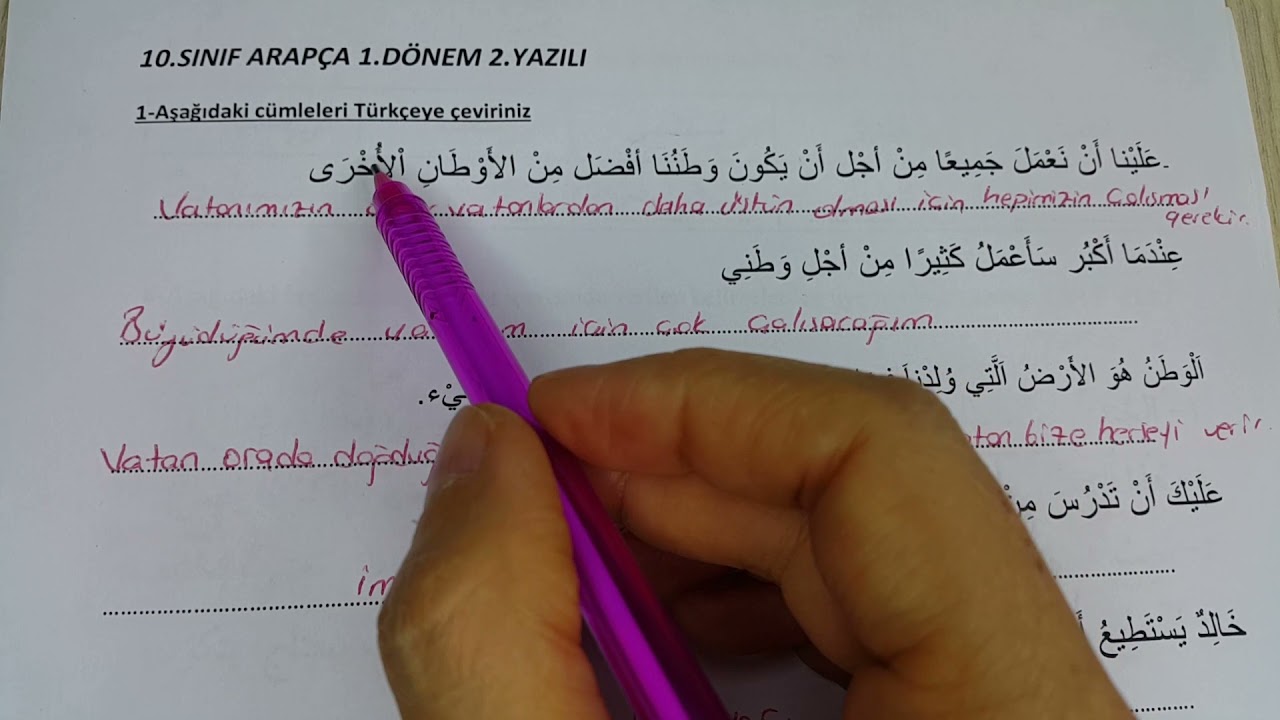 10.SINIF ARAPÇA 1.DÖNEM 2.YAZILI
1-Aşağıdaki cümleleri Türkçeye çeviriniz
.عَلَيْنا أَنْ نَعْمَلَ جَمِيعًا مِنْ أجْل أَنْ يَكُونَ وَطَنُنَا أفْضَل مِنْ الأَوْطَانِ اْلأُخْرَى
Vatanımızın vatanlardan daha üstün olması için hepimizin çalışması
gerekir.
عِنْدَمَا أَكْبُر سَأَعْمَلُ كَثِيرًا مِنْ أجْلِ وَطَنِي
Büyüdüğümde için çok çalışacağım
اَلْوَطَنُ هُوَ الأَرْضُ اَلَّتِي
Vatan orada bize herşeyi verir.
عَلَيْكَ أَنْ تَدْرُسَ
خَالِدٌ يَسْتَطِيعُ